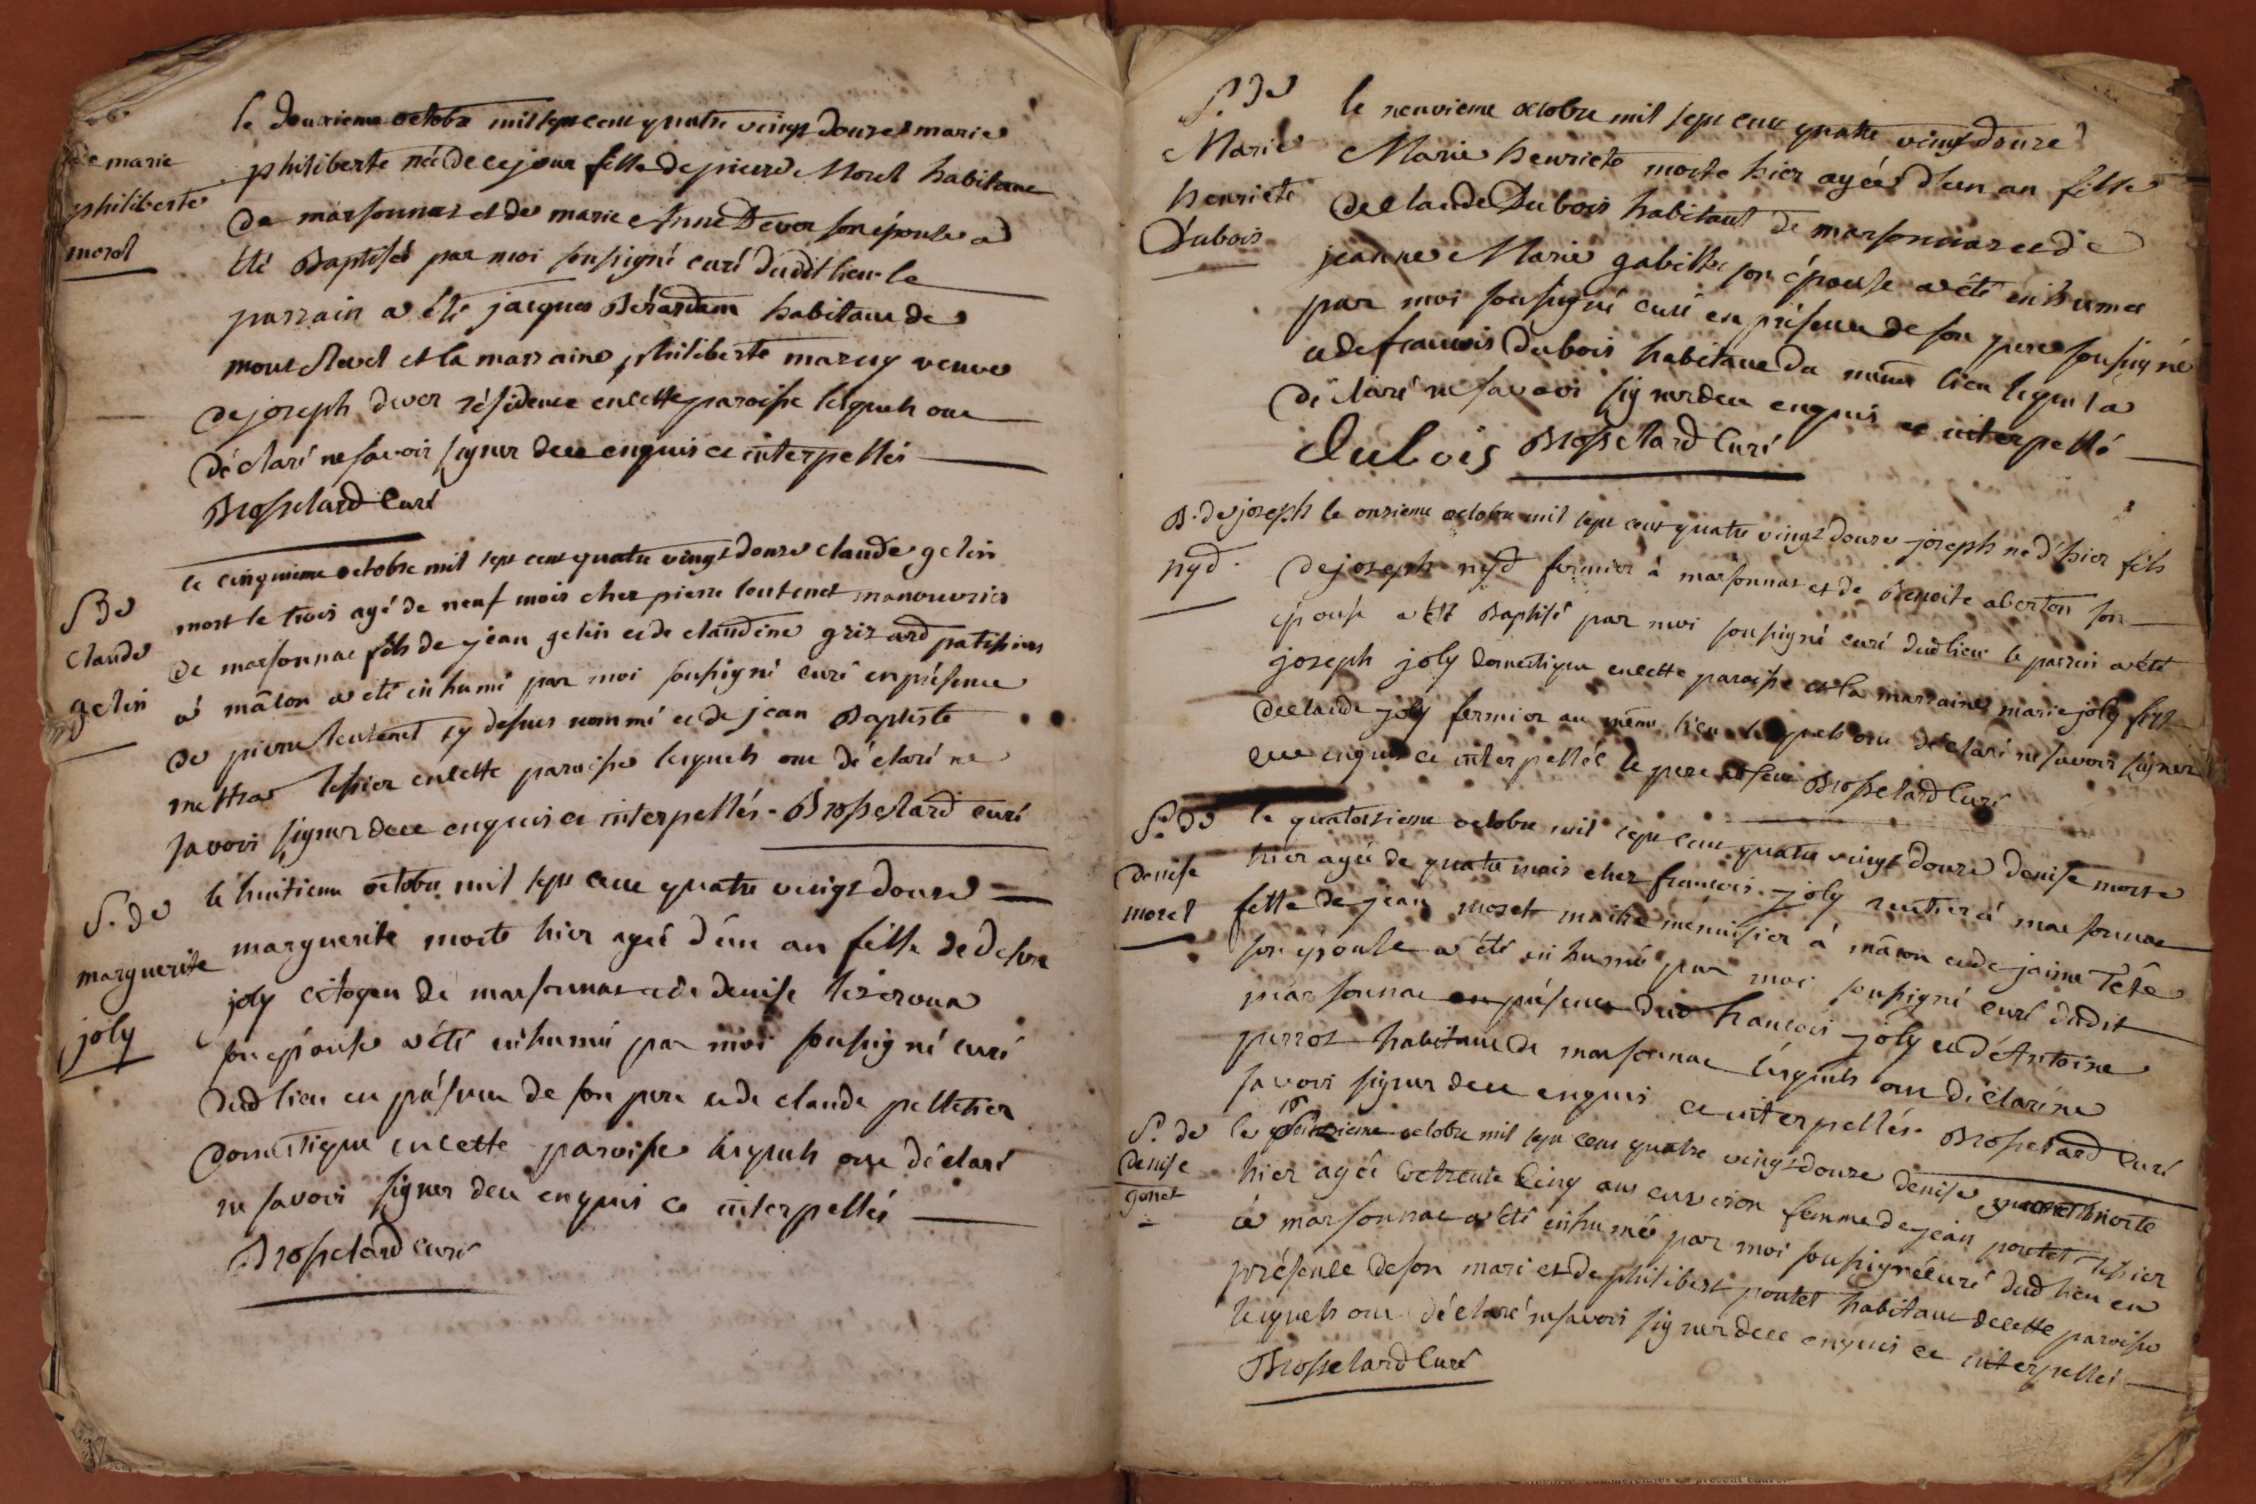 le deuxieme octobre mil sept cent quatre vingt douze marie
B. de marie
philiberte
morel
philiberte née de ce jour fille de pierre Morel habitant
de marsonnas et de marie Anne Dever son épouse a
été Baptisée par moi soussigné curé dudit lieu le
parrain a été jacques Bérardan habitant de
mont revel et la marraine philiberte maruy veuve
de joseph dever résidente en cette paroisse lesquels ont
déclaré ne savoir signer dece enquis ce interpellés
Brosselard Curé
S. de
claude
gelin
le cinquieme octobre mil sept cent quatre vingt douze claude gelin
mort le trois agé de neuf mois chez pierre loutenet manouvrier
de marsonnas fils de jean gelin et de claudine grizard patissiers
a mâcon a été inhumé par moi soussigné curé en présence
de pierre loutenet cy dessus nommé et de jean Baptiste
mettra tessier en cette paroisse lesquels ont déclaré ne
savoir signer dece enquis ce interpellés. Brosselard curé
S. de
marguerite
joly
le huitieme octobre mil sept cent quatre vingt douze
marguerite morte hier agée d'un an fille de
joly citoyen de marsonnas et de denise
son épouse a été inhumée par moi soussigné curé
dud lieu en présence de son pere et de claude pelletier
domestique en cette paroisse lesquels ont déclaré
ne savoir signer dece enquis ce interpellés
Brosselard curé
S. de
Marie
henriete
Dubois
le neuvieme octobre mil sept cent quatre vingt douze
Marie henriete morte hier agée d'un an fille
de claude Dubois habitant de marsonnas et de
jeanne Marie gabillet son épouse a été inhumée
par moi soussigné curé en présence de son pere soussigné
et de francois dubois habitant du même lieu lequel a
déclaré ne savoir signer dece enquis et interpellé
Dubois Brosselard Curé
B. de joseph
nyd.
le onzieme octobre mil sept cent quatre vingt douze joseph né d'hier fils
de joseph nyd fermier à marsonnas et de Benoite aberton son
épouse a été Baptisé par moi soussigné curé dud lieu le parrain a été
joseph joly domestique en cette paroisse et la marraine marie joly fille
de claude joly fermier au même lieu lesquels ont déclaré ne savoir signer
dece enquis ce interpellés le pere Brosselard Curé
S. de
denise
morel
le quatorzieme octobre mil sept cent quatre vingt douze denise morte
hier agée de quatre mois chez francois joly rentier à marsonnas
fille de jean morel maitre menuisier à mâcon et de jeanne Tête
son épouse a été inhumée par moi soussigné curé dudit
marsonnas en présence dud francois joly et d'Antoine
perrot habitant de marsonnas lesquels ont déclaré ne
savoir signer dece enquis ce interpellés. Brosselard Curé
S. de
denise
gonet
le octobre mil sept cent quatre vingt douze denise morte
hier agée de trente cinq ans environ femme de jean poutet tessier
à marsonnas a été inhumée par moi soussigné curé dud lieu en
présence de son mari et de philibert poutet habitant de cette paroisse
lesquels ont déclaré ne savoir signer dece enquis ce interpellés
Brosselard Curé